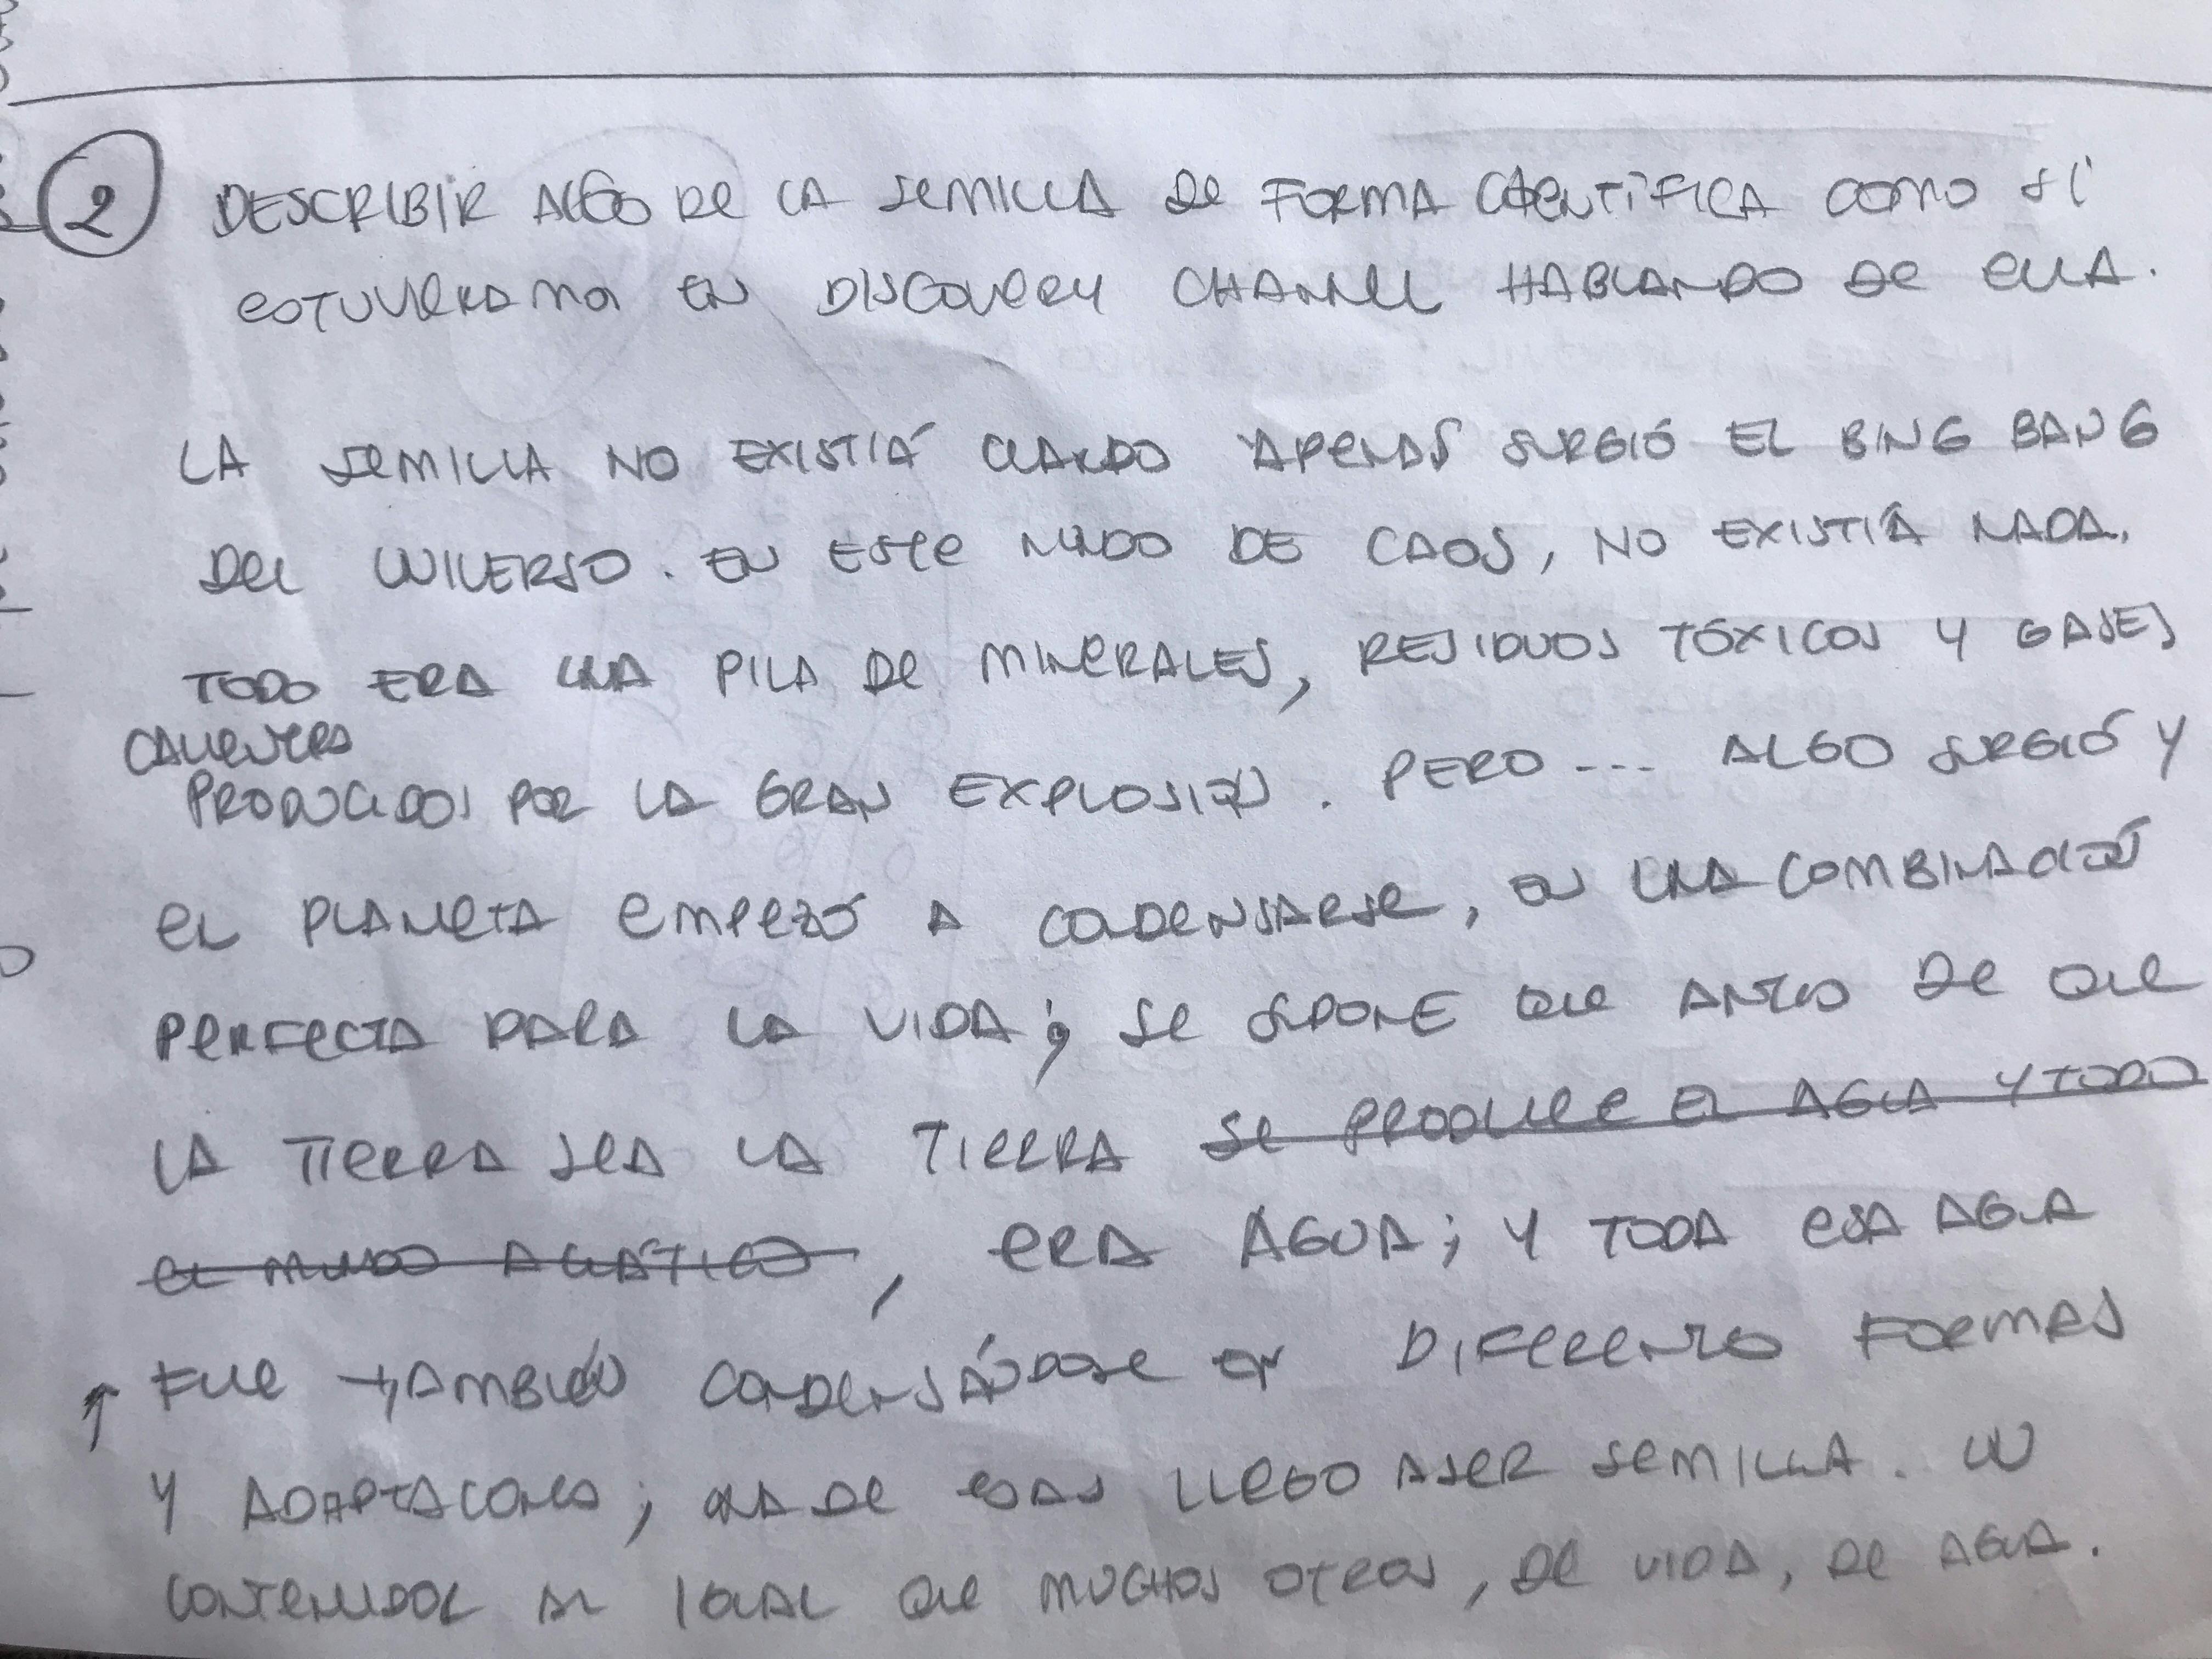 2 DESCRIBIR ALGO DE LA SEMILLA DE FORMA CIENTÍFICA COMO SI
ESTUVIERAMOS EN DISCOVERY CHANNEL HABLANDO DE ELLA.
LA SEMILLA NO EXISTIÁ CUANDO APENAS SURGIÓ EL BING BANG
DEL UNIVERSO. EN ESTE MUNDO DE CAOS, NO EXISTIÁ NADA.
TODO ERA UNA PILA DE MINERALES, RESIDUOS TÓXICOS Y GASES
CALIENTES
PRODUCIDOS POR LA GRAN EXPLOSIÓN. PERO --- ALGO SURGIÓ Y
EL PLANETA EMPEZÓ A CONDENSARSE, EN UNA COMBINACIÓN
PERFECTA PARA LA VIDA; SE SUPONE QUE ANTES DE QUE
LA TIERRA SEA LA TIERRA SE PRODUCE EL AGUA Y TODO
EL MUNDO ACUÁTICO, ERA ÁGUA; Y TODA ESA AGUA
FUE TAMBIÉN CONDENSÁNDOSE EN DIFERENTES FORMAS
Y ADAPTACONES; UNA DE ESAS LLEGO A SER SEMILLA. UN
CONTENEDOR AL IGUAL QUE MUCHOS OTROS, DE VIDA, DE AGUA.